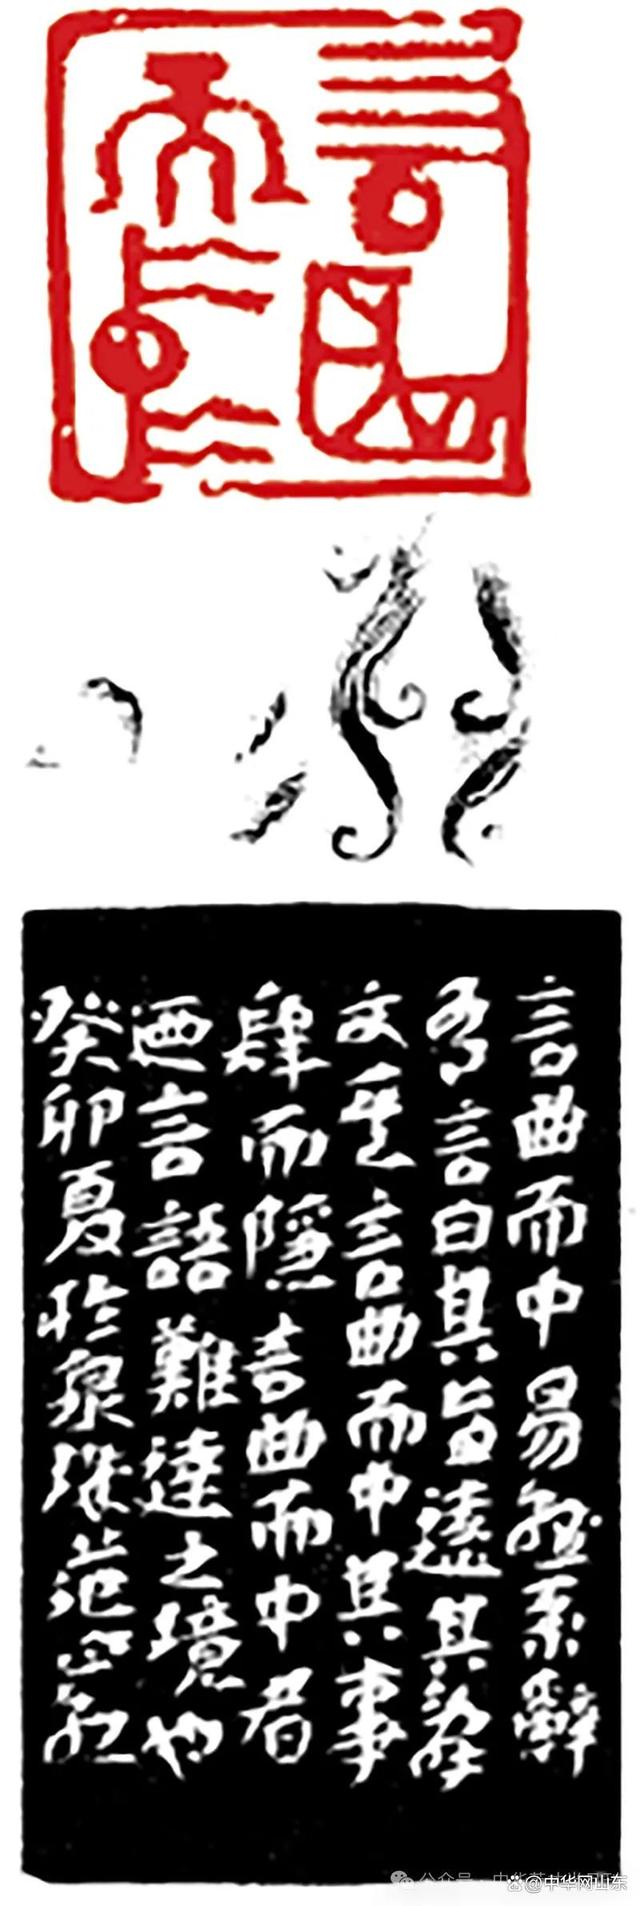 言曲
而中
言曲而中易經系辭
有言曰其旨遠其辭
文其言曲而中其事
肆而隱言曲而中者
迺言語難達之境也
癸卯夏於泉城范正紅
公众号
@中华网山东